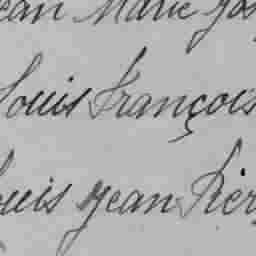 ean Marie Jos
Louis François
ouis Jean Pier